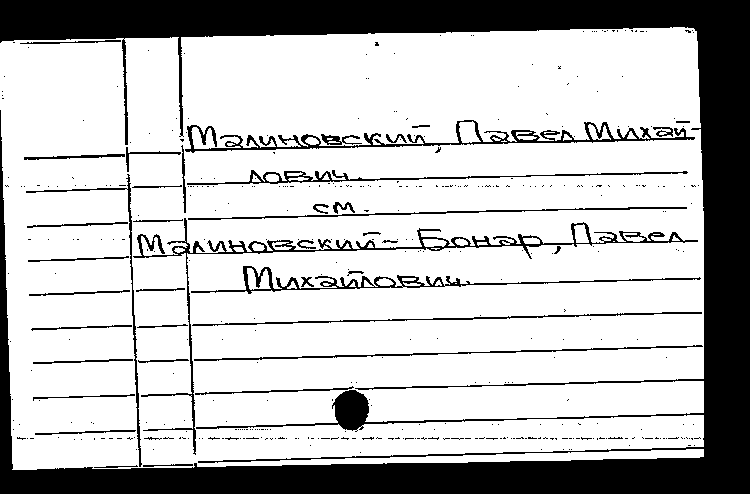 Малиновский, Павел Михай-
лович.
см.
Малиновский - Бонар, Павел
Михайлович.